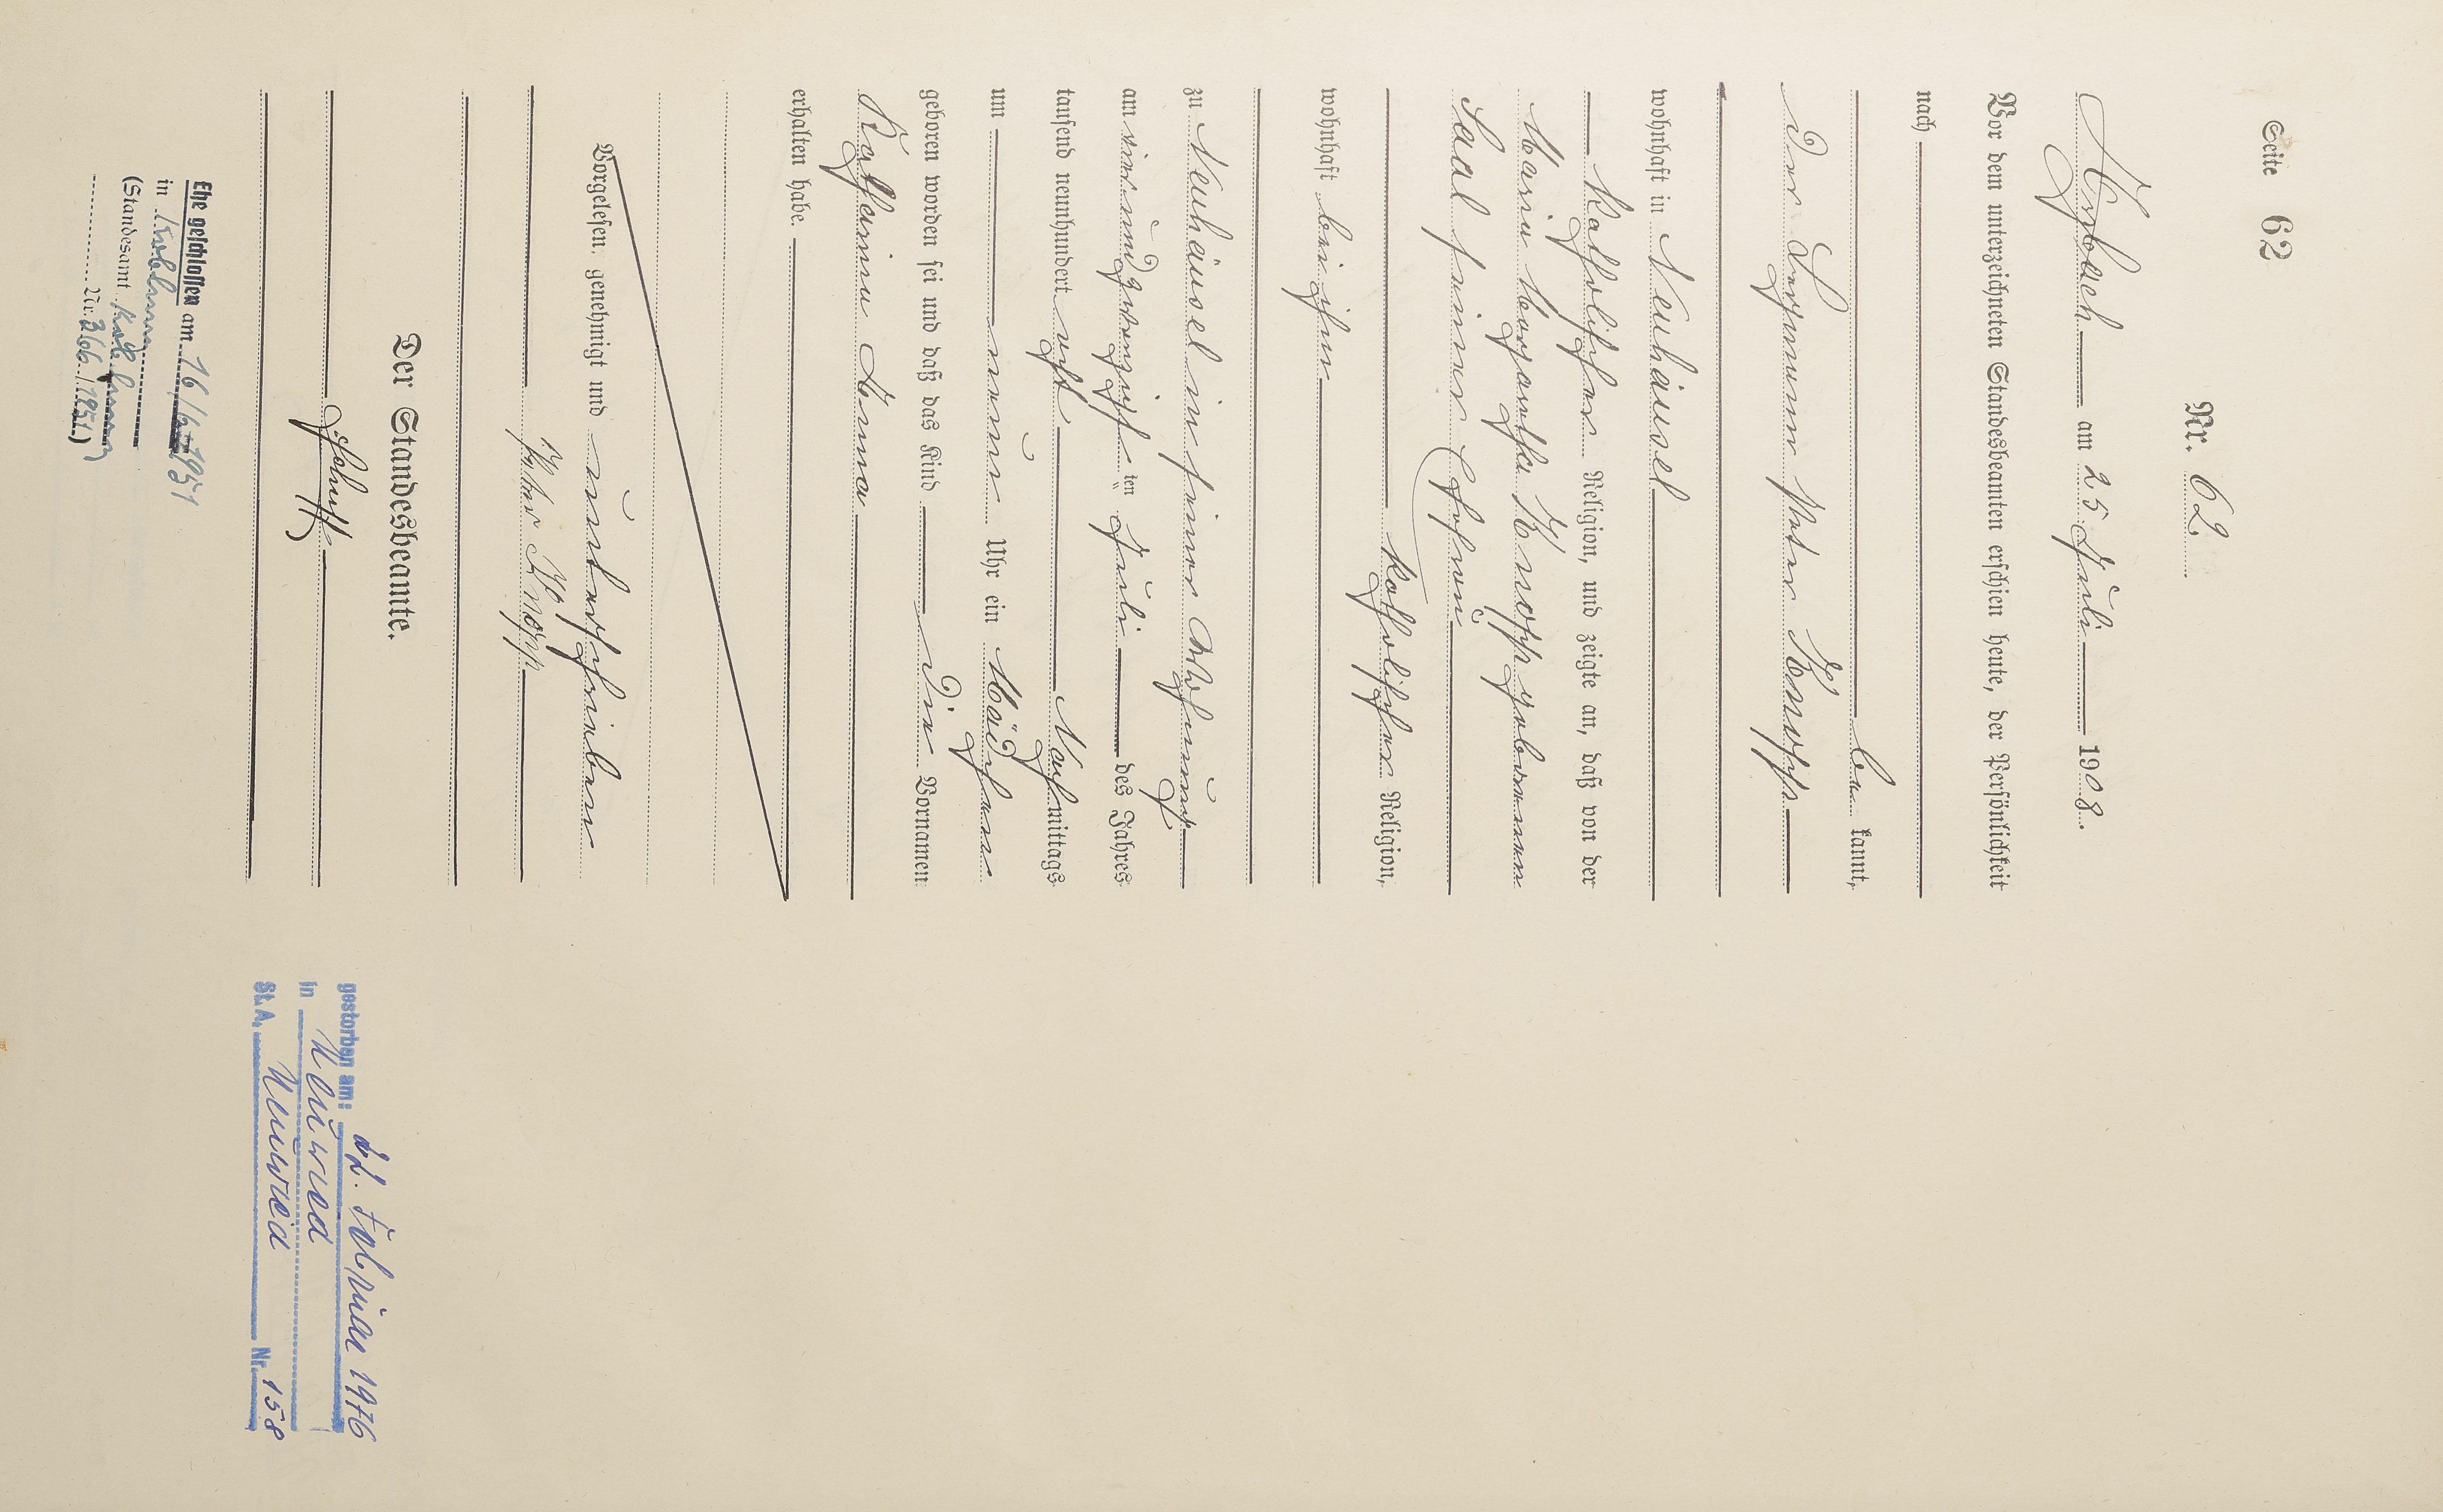 Seite 62
Nr. 62
am 25 Juli 1908.
Vor dem unterzeichneten Standesbeamten erschien heute, der Persönlichkeit
nach
be kannt,
der Bergmann Peter Knopp
wohnhaft in Neuhäusel
katholischer Religion, und zeigte an, daß von der
Maria Margaretha Knopp geborenen
Saal seiner Ehefrau
katholischer Religion,
wohnhaft bei ihm
zu Neuhäusel in seiner Wohnung
am vierundzwanzigsten ten Juli des Jahres
tausend neunhundert acht Nachmittags
um neun Uhr ein Mädchen
geboren worden sei und daß das Kind die Vornamen
Katharina Anna
erhalten habe.
Vorgelesen, genehmigt und unterschrieben
Peter Knopp
Der Standesbeamte.
Ehe geschlossen am 16/6 1951
in Koblenz
(Standesamt Koblenz
Nr. 366/1951)
gestorben am: Februar 1976
in Neuwied
St.A. Neuwied Nr. 158